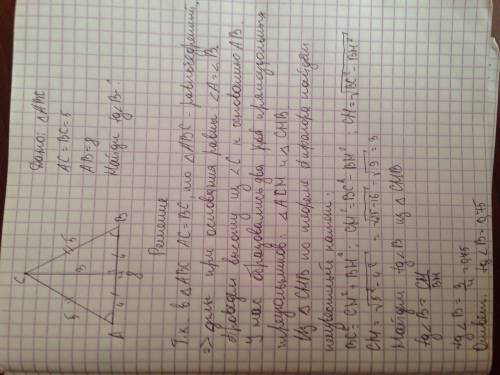 C
5
5
3
4
4
A
B
8
Дано: △ABC
AC = BC = 5
AB = 8
Найди tg∠B - ?
Решение
Т.к. в △ABC AC = BC, то △ABC - равнобедренный,
=> углы при основании равны ∠A = ∠B
Проведем высоту из ∠C к основанию AB.
У нас образовались два прямоугольных
треугольников: △ACH и △CHB
Из △CHB по теореме Пифагора найдем
неизвестный катет:
BC² = CH² + BH² ; CH² = BC² - BH² CH = √BC² - BH²
CH = √5² - 4² = √25 - 16 = √9 = 3
Найдем tg∠B из △CHB
tg∠B = CH/BH
tg∠B = 3/4 = 0,75
Ответ: tg∠B = 0,75